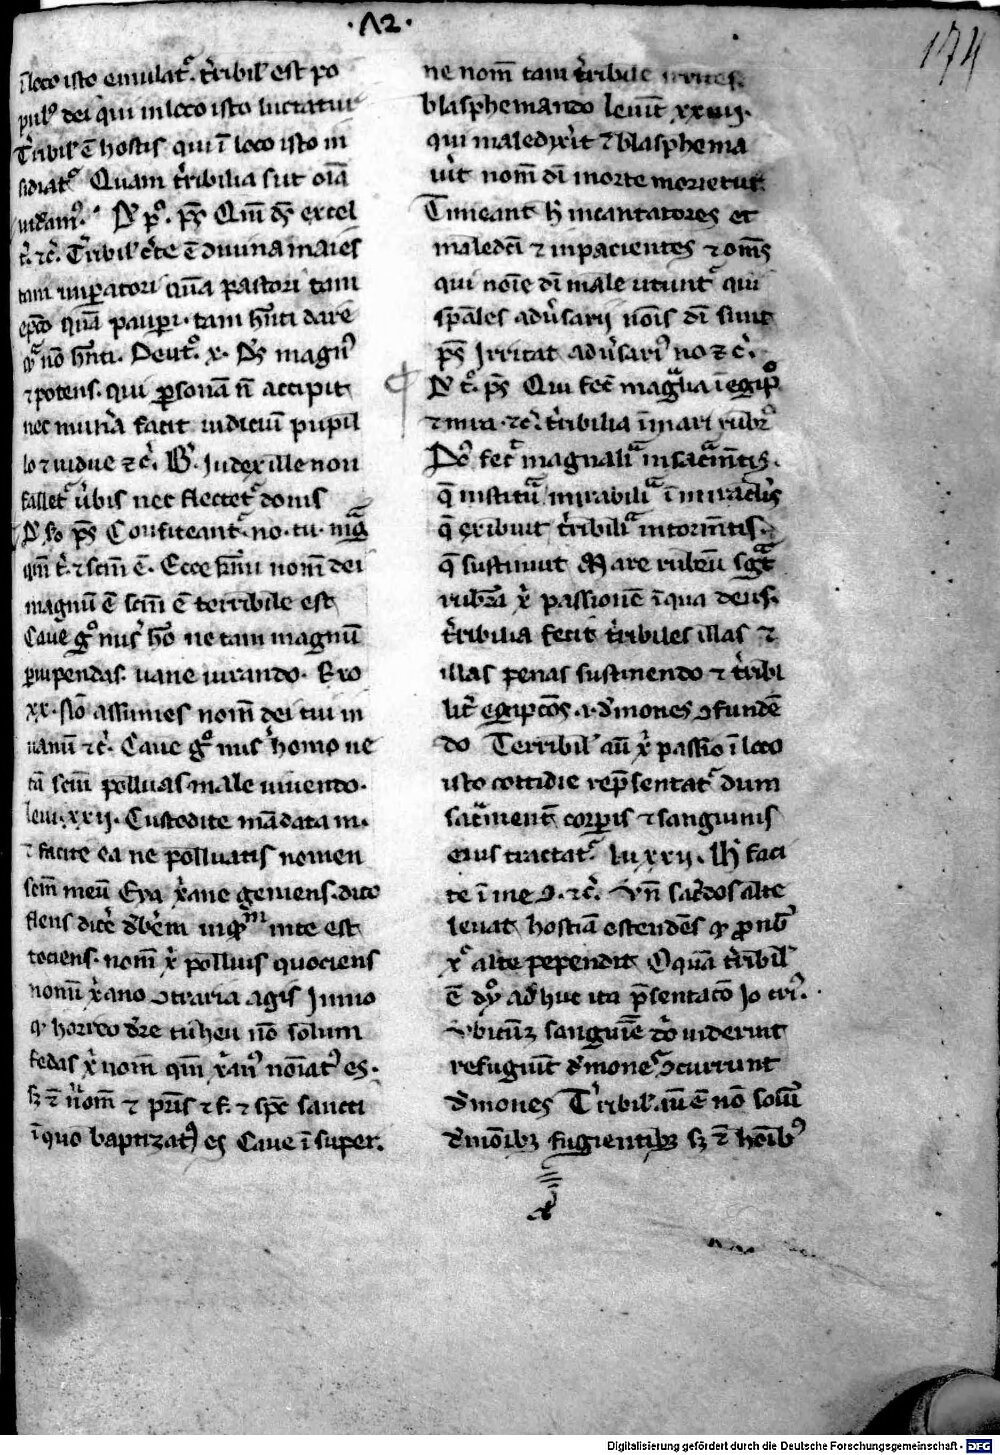 ·12·
174
ī loco isto emulat᷑. t̉ribil᷒ est po
pul᷒ dei qui in loco isto luctatur
T̉ribil᷒ ē hostis qui ī loco isto in
sidiat᷑ Quam t̉ribilia sūt oīa
uideam᷒. D̉ p̊. p̄s Qm̄ dn̄s excel
t̉. ⁊c̉. T̉ribil᷒ c̉te ē diuina maies
tam īmperatori quā pastori tam
ep̄o quā pauperi· tam hn̄ti dare
q᷑ nō hn̄ti. Deut̊. x. D̄s magn᷒
⁊ potens. qui ꝑsonā n̄ accipit
nec mun̉a facit iudiciū pupil
lo ⁊ uidue ⁊c̉. B̉. Judex ille non
fallet᷑ ủbis nec flectet᷑ donis
D̉ s̊o p̄s Confiteant᷑· no· tu· mag
qm̄ t̉. ⁊ scm̄ ē. Ecce nom̄ dei
magnū ē scm̄ ē terribile est
Caue g̊ mis̉ ho ne tam magnū
uipendas. uane iurando. Exo
xx. Nō assumes nom̄ dei tui in
uanū ⁊c̉. Caue g̊ mis̉ homo ne
tā scm̄ polluas male uiuendo.
Leui. xxij. Custodite mādata m.
⁊ facite ea ne polluatis nomen
scm̄ meū Eya x̉ane gemens. dice
flens dic̉e in te est
tociens. nom̄ x̉ polluis quociens
nomī x̉ano ꝯtraria agis Jmmo
ꝙ horreo d̉re tu heu nō solum
fedas x̉ nom̄ qm̄ x̉an᷒ noīat᷒ es.
sꝫ ⁊ nom̄ ⁊ pr̄is ⁊ f. ⁊ sp̄c sancti
ī quo baptizat᷒ es Caue ī super.
ne nom̄ tam t̉ribile irrites.
blasphemando leuit̄ xxiiij.
qui maledix̉it ⁊ blasphema
ủit nom̄ dī morte moriet᷑
Timeant h̄ incantatores et
maledci ⁊ inpacientes ⁊ oms̄
qui noīe dī male utunt᷑ qui
sp̄ales adủsarij noīs dī sunt
p̄s Jrritat adủsari᷒ no ⁊c̉.
D̉ t̊. p̄s Qui fec̄ magnalia ī egip̊
⁊ mira· ⁊c̉. t̉ribilia ī mari rubr̊
fec̄ magnalia in sac̉mn̄tis.
q̄ instituit mirabilia ī miraclis
q̄ exibuit t̉ribilia in tormn̄tis
q̄ sustinuit Mare rubrū sgᵃt
rubr̄a x̉ passionē ī qua deus.
t̉ribilia fecit t̉ribiles illas ⁊
illas penas sustinendo ⁊ t̉ribi
lit̉ egipcōs .i. d̉mones ꝯfundē
do Terribil᷒ aū x̉ passio ī loco
isto cottidie rep̄sentat᷑ dum
sac̉ment̄ corꝑis ⁊ sanguinis
eius tractat᷑. Lu xxij. H̄ faci
te ī me ꝯ. ⁊c̉. Vn̄ sac̉dos alte
leuat hostiā ostendēs ꝙ ꝓ nob᷒
x᷒ alte pependit O quā t̉ribil᷒
ē adhuc ita p̄sentatō
Vbicūꝫ sanguinē dn̄i uiderint
refugiūt d̉mones ꝯcurrunt
d̉mones T̉ribil᷒ aū ē nō solū
d̉monibꝫ fugientibꝫ sꝫ ⁊ hōib᷒
Digitalisierung gefördert durch die Deutsche Forschungsgemeinschaft - DFG